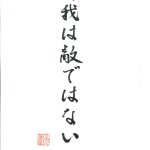 我は敵ではない